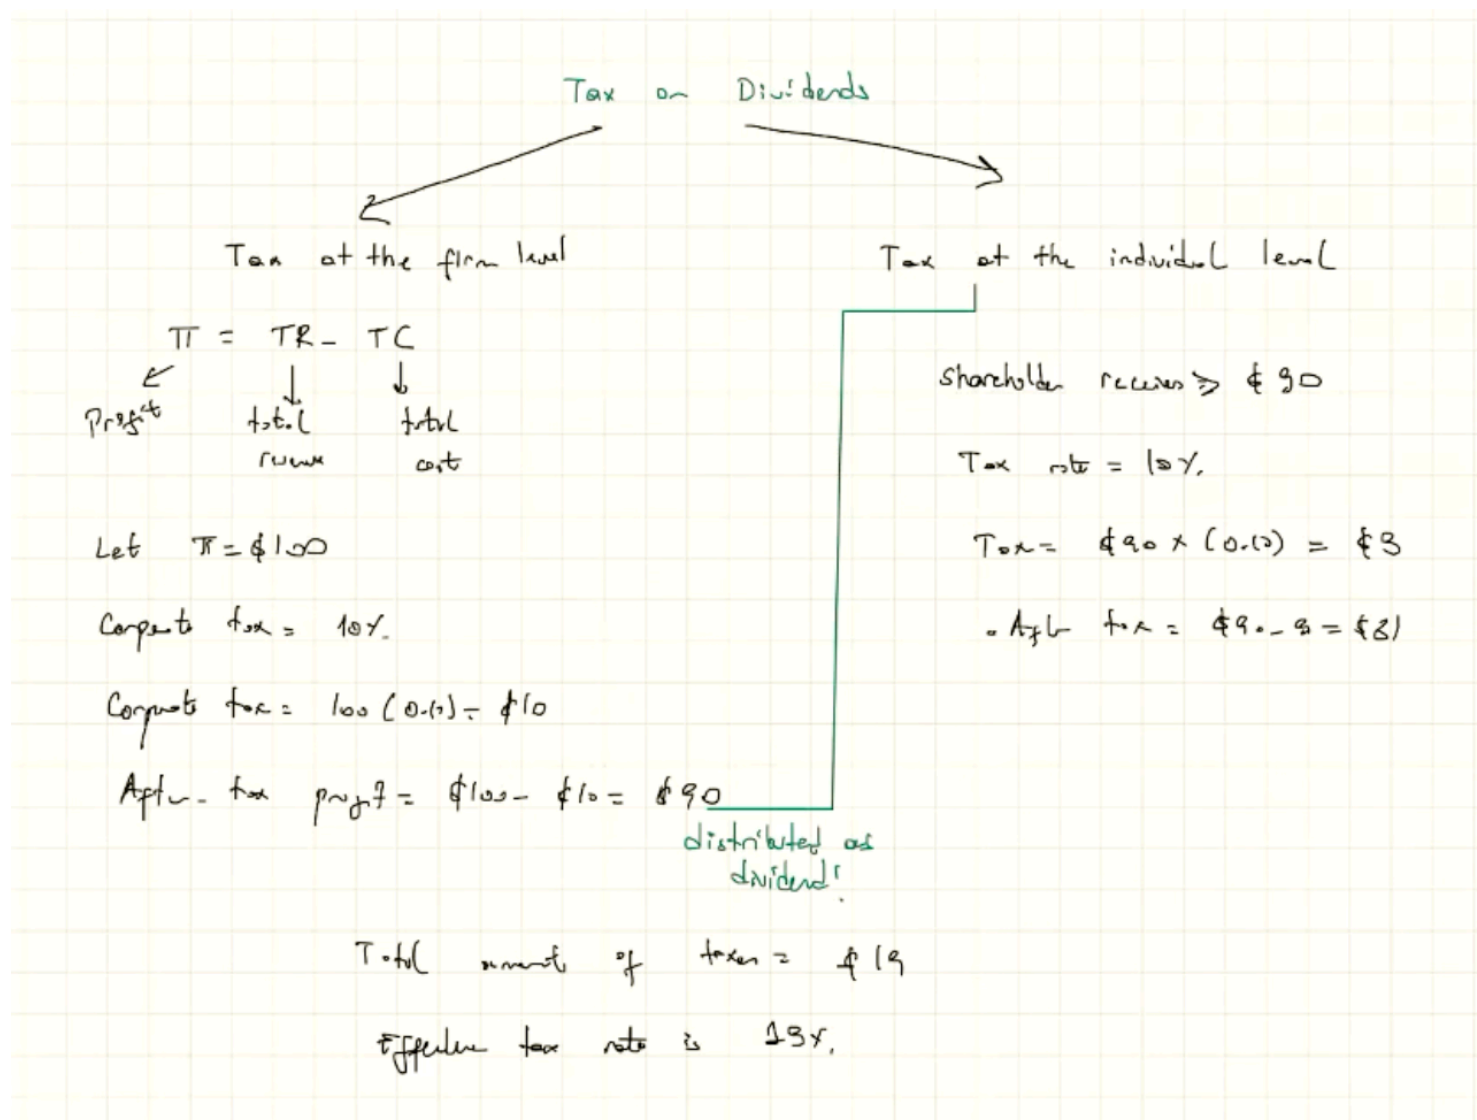 Tax on Dividends
Tax at the firm level
π = TR - TC
Profit
total
revenue
total
cost
Let π = $100
Corporate tax = 10%.
Corporate tax = 100 (0.10) = $10
After-tax profit = $100 - $10 = $90
distributed as
dividend!
Tax at the individual level
Shareholder receives → $90
Tax rate = 10%.
Tax = $90 x (0.10) = $9
After tax = $90 - 9 = $81
Total amount of taxes = $19
Effective tax rate is 19%.